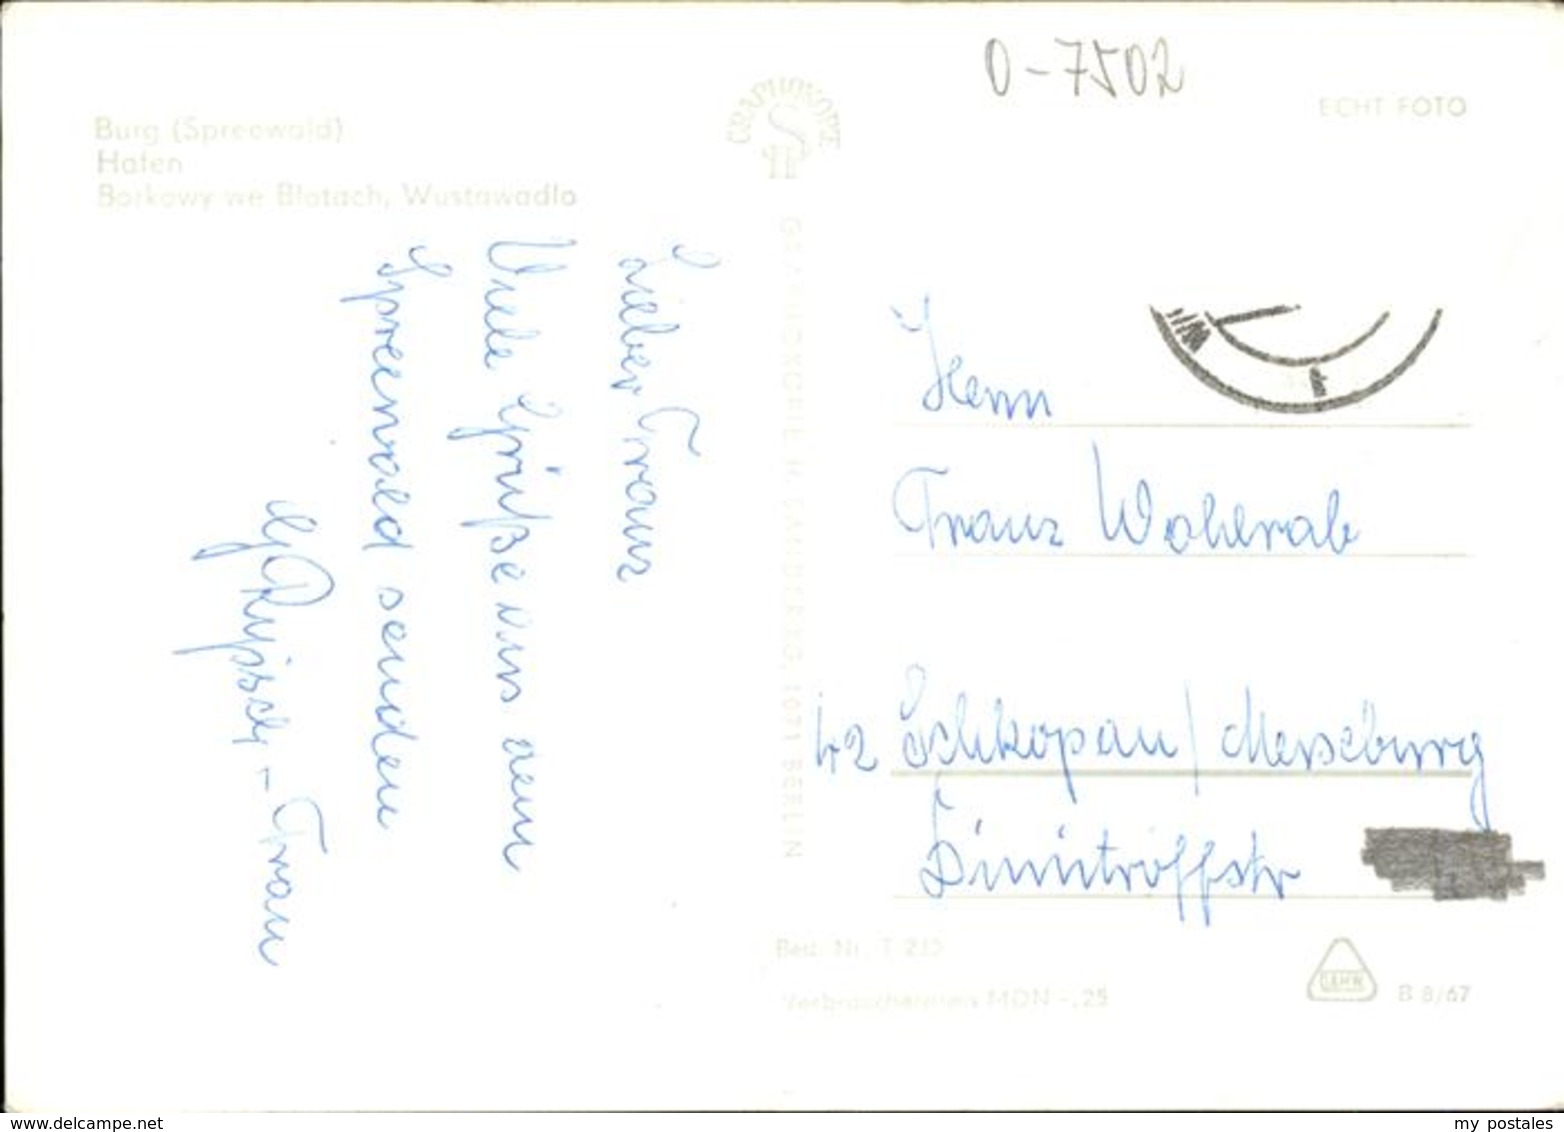 O-7502
ECHT FOTO
Burg (Spreewald)
Hafen
Borkowy we Błotach, Wustawadło
GRAPHOKOPIE
GRAPHOKOPIE H. SANDER KG, 1071 BERLIN
Lieber Franz
Viele Grüße aus dem
Spreewald senden
G. + Frau
Herrn
Franz Wohlrab
42 Schkopau / Merseburg
Dimitroffstr
Best. Nr. T 233
Verbraucherpreis MDN -,25
B 8/67
www.delcampe.net
my_postales